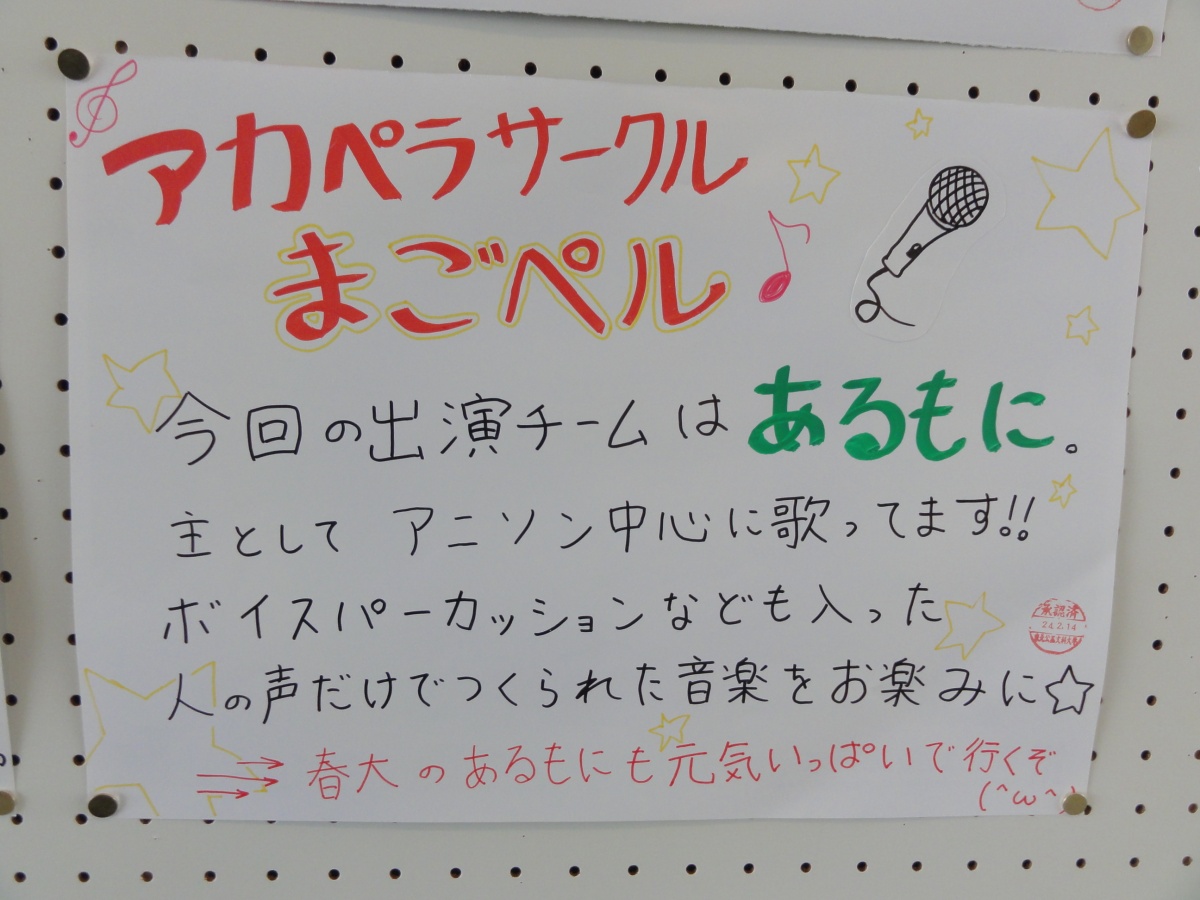 アカペラサークル
まごペル
今回の出演チームはあるもに。
主として アニソン中心に歌ってます!!
ボイスパーカッションなども入った
承認済
24.2.14
人の声だけでつくられた音楽をお楽みに☆
春大のあるもにも元気いっぱいで行くぞ
(^ω^)